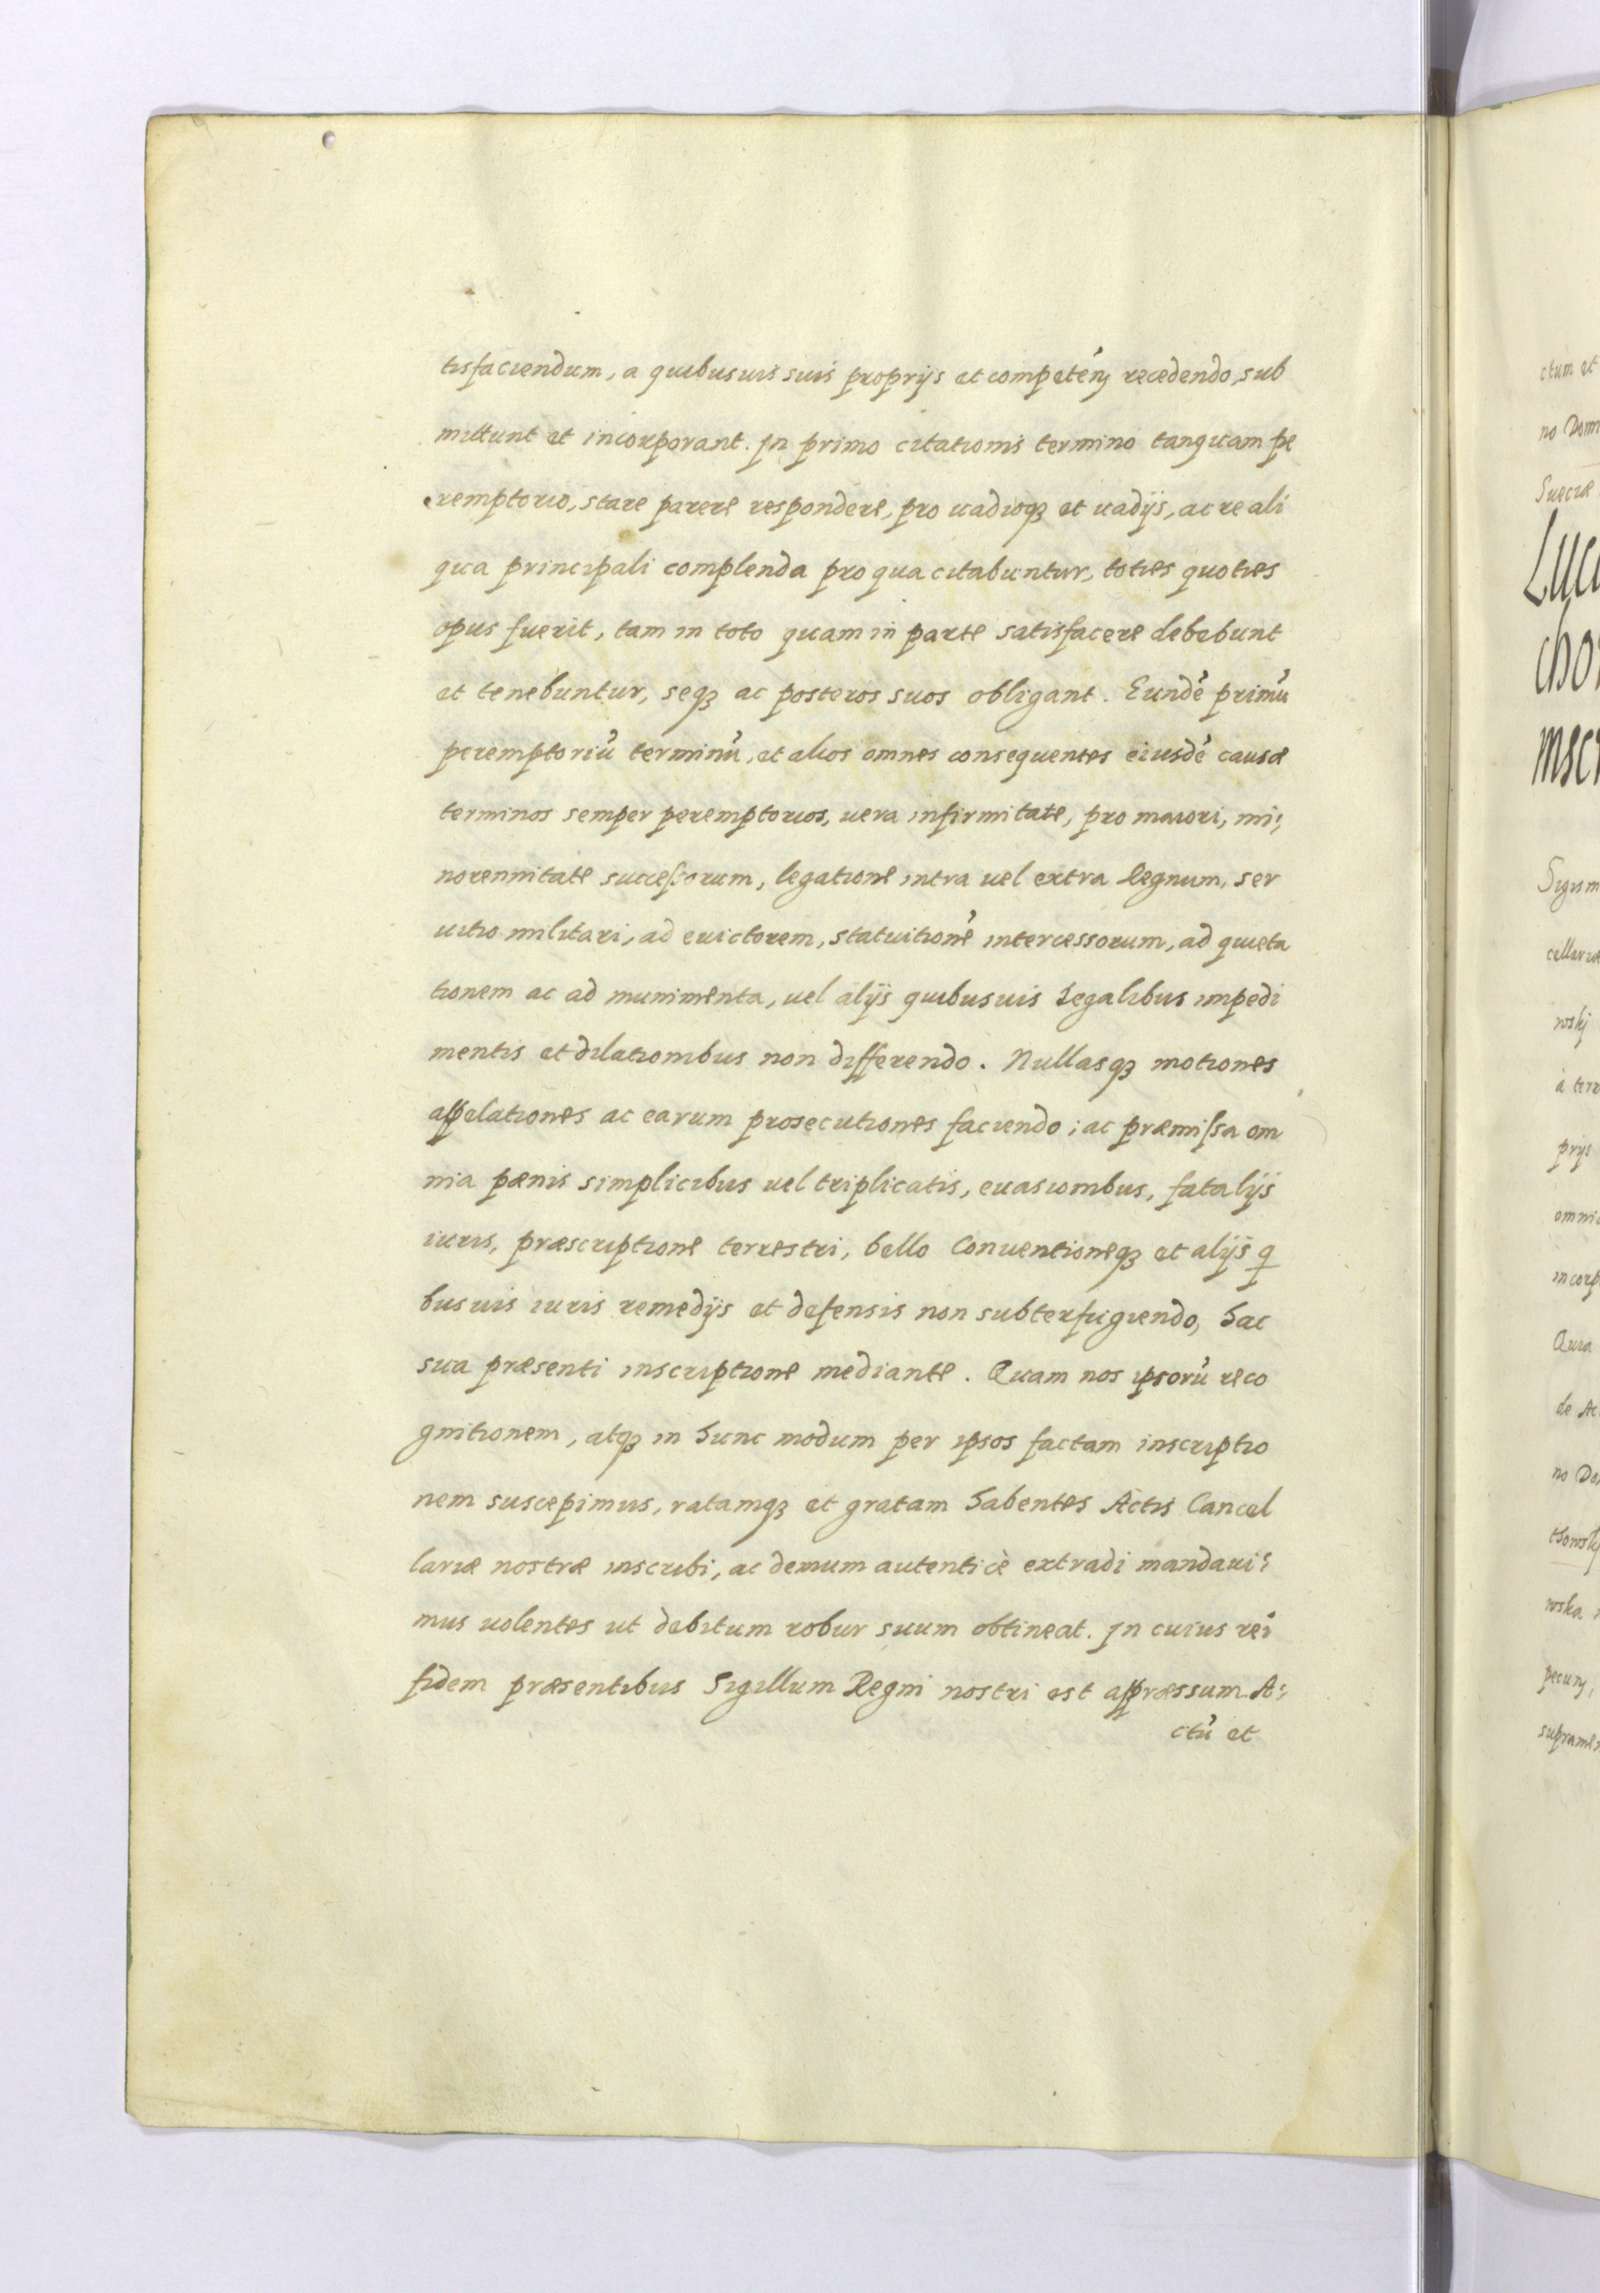 tisfaciendum, a quibusuis suis proprijs et competeń recedendo, sub
mittunt et incorporant. Jn primo citationis termino tanquam pe
remptorio, stare parere respondere, pro uadioqꝫ et uadijs, ac re ali
qua principali complenda pro qua citabuntur, toties quoties
opus fuerit, tam in toto quam in parte satisfacere debebunt
et tenebuntur, seqꝫ ac posteros suos obligant. Eundē primū
peremptoriū terminū, et alios omnes consequentes eiusdē causæ
terminos semper peremptorios, uera infirmitate, pro maiori, mi:
norennitate successorum, legatione intra uel extra Regnum, ser
uitio militari, ad euictorem, statuitionē intercessorum, ad quieta
tionem ac ad munimenta, uel alijs quibusuis legalibus impedi
mentis et dilationibus non differendo. Nullasqꝫ motiones
appelationes ac earum prosecutiones faciendo; ac præmissa om
nia pænis simplicibus uel triplicatis, euasionibus, fatalijs
iuris, præscriptione terrestri, bello Conuentioneqꝫ et alijs q
busuis iuris remedijs et defensis non subterfugiendo, hac
sua præsenti inscriptione mediante. Quam nos ipsorū reco
gnitionem, atqꝫ in hunc modum per ipsos factam inscriptio
nem suscepimus, ratamqꝫ et gratam habentes Actis Cancel
lariæ nostræ inscribi, ac demum autenticè extradi mandaui:
mus uolentes ut debitum robur suum obtineat. Jn cuius rei
fidem præsentibus Sigillum Regni nostri est appræssum. A:
ctū et
ctum et
no Dom
Sueciæ
Luc
chor
inscr
Sigism
cellariæ
wskj
à terr
prijs
omni
incorp
Quia
de Ac
no Do
thowskj
wska
pecun,
suprame